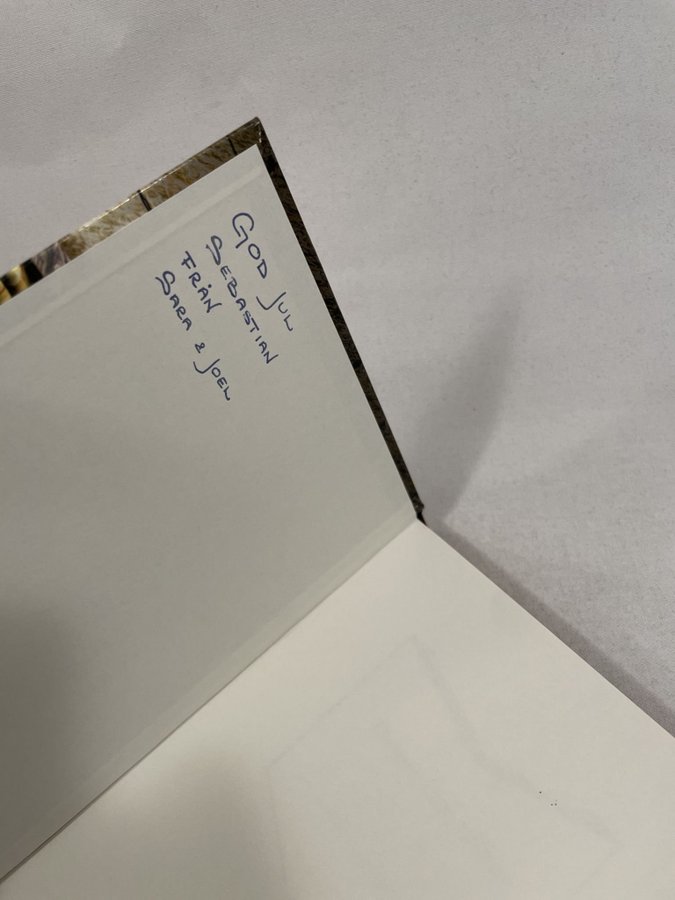 GOD JUL
SEBASTIAN
FRÅN
SARA & JOEL